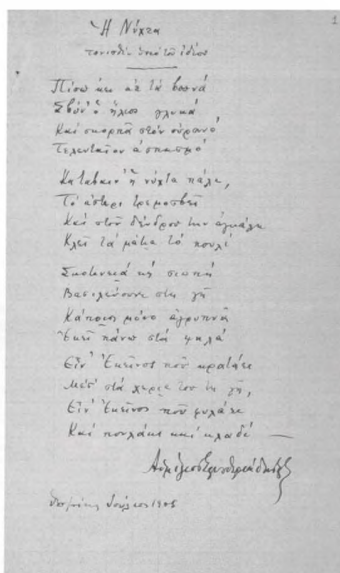 1
Ἡ Νύχτα
τονισθὲν ὑπὸ τοῦ ἰδίου
Πίσω κεῖ ἀπ' τὰ βουνά
Σβύν' ὁ ἥλιος γλυκά
Καὶ σκορπᾶ στὸν οὐρανό
Τελευταῖον ἀσπασμό
Καταβαίν' ἡ νύχτα πάλε,
Τὸ ἀστέρι τρεμοσβεῖ
Καὶ στοῦ δένδρου τὴν ἀγκάλη
Κλεῖ τὰ μάτια τὸ πουλί
Σκοτεινιά κὴ σιωπή
Βασιλεύουνε στὴ γῆ
Κάποιος μόνο ἀγρυπνᾶ
Ἐκεῖ πάνω στὰ ψηλά
Εἶν' Ἐκεῖνος ποῦ κρατάει
Μέσ' στὰ χέρια του τὴ γῆ,
Εἶν' Ἐκεῖνος ποῦ φυλάει
Καὶ πουλάκι καὶ κλαδί
Ἰούλιος 1905